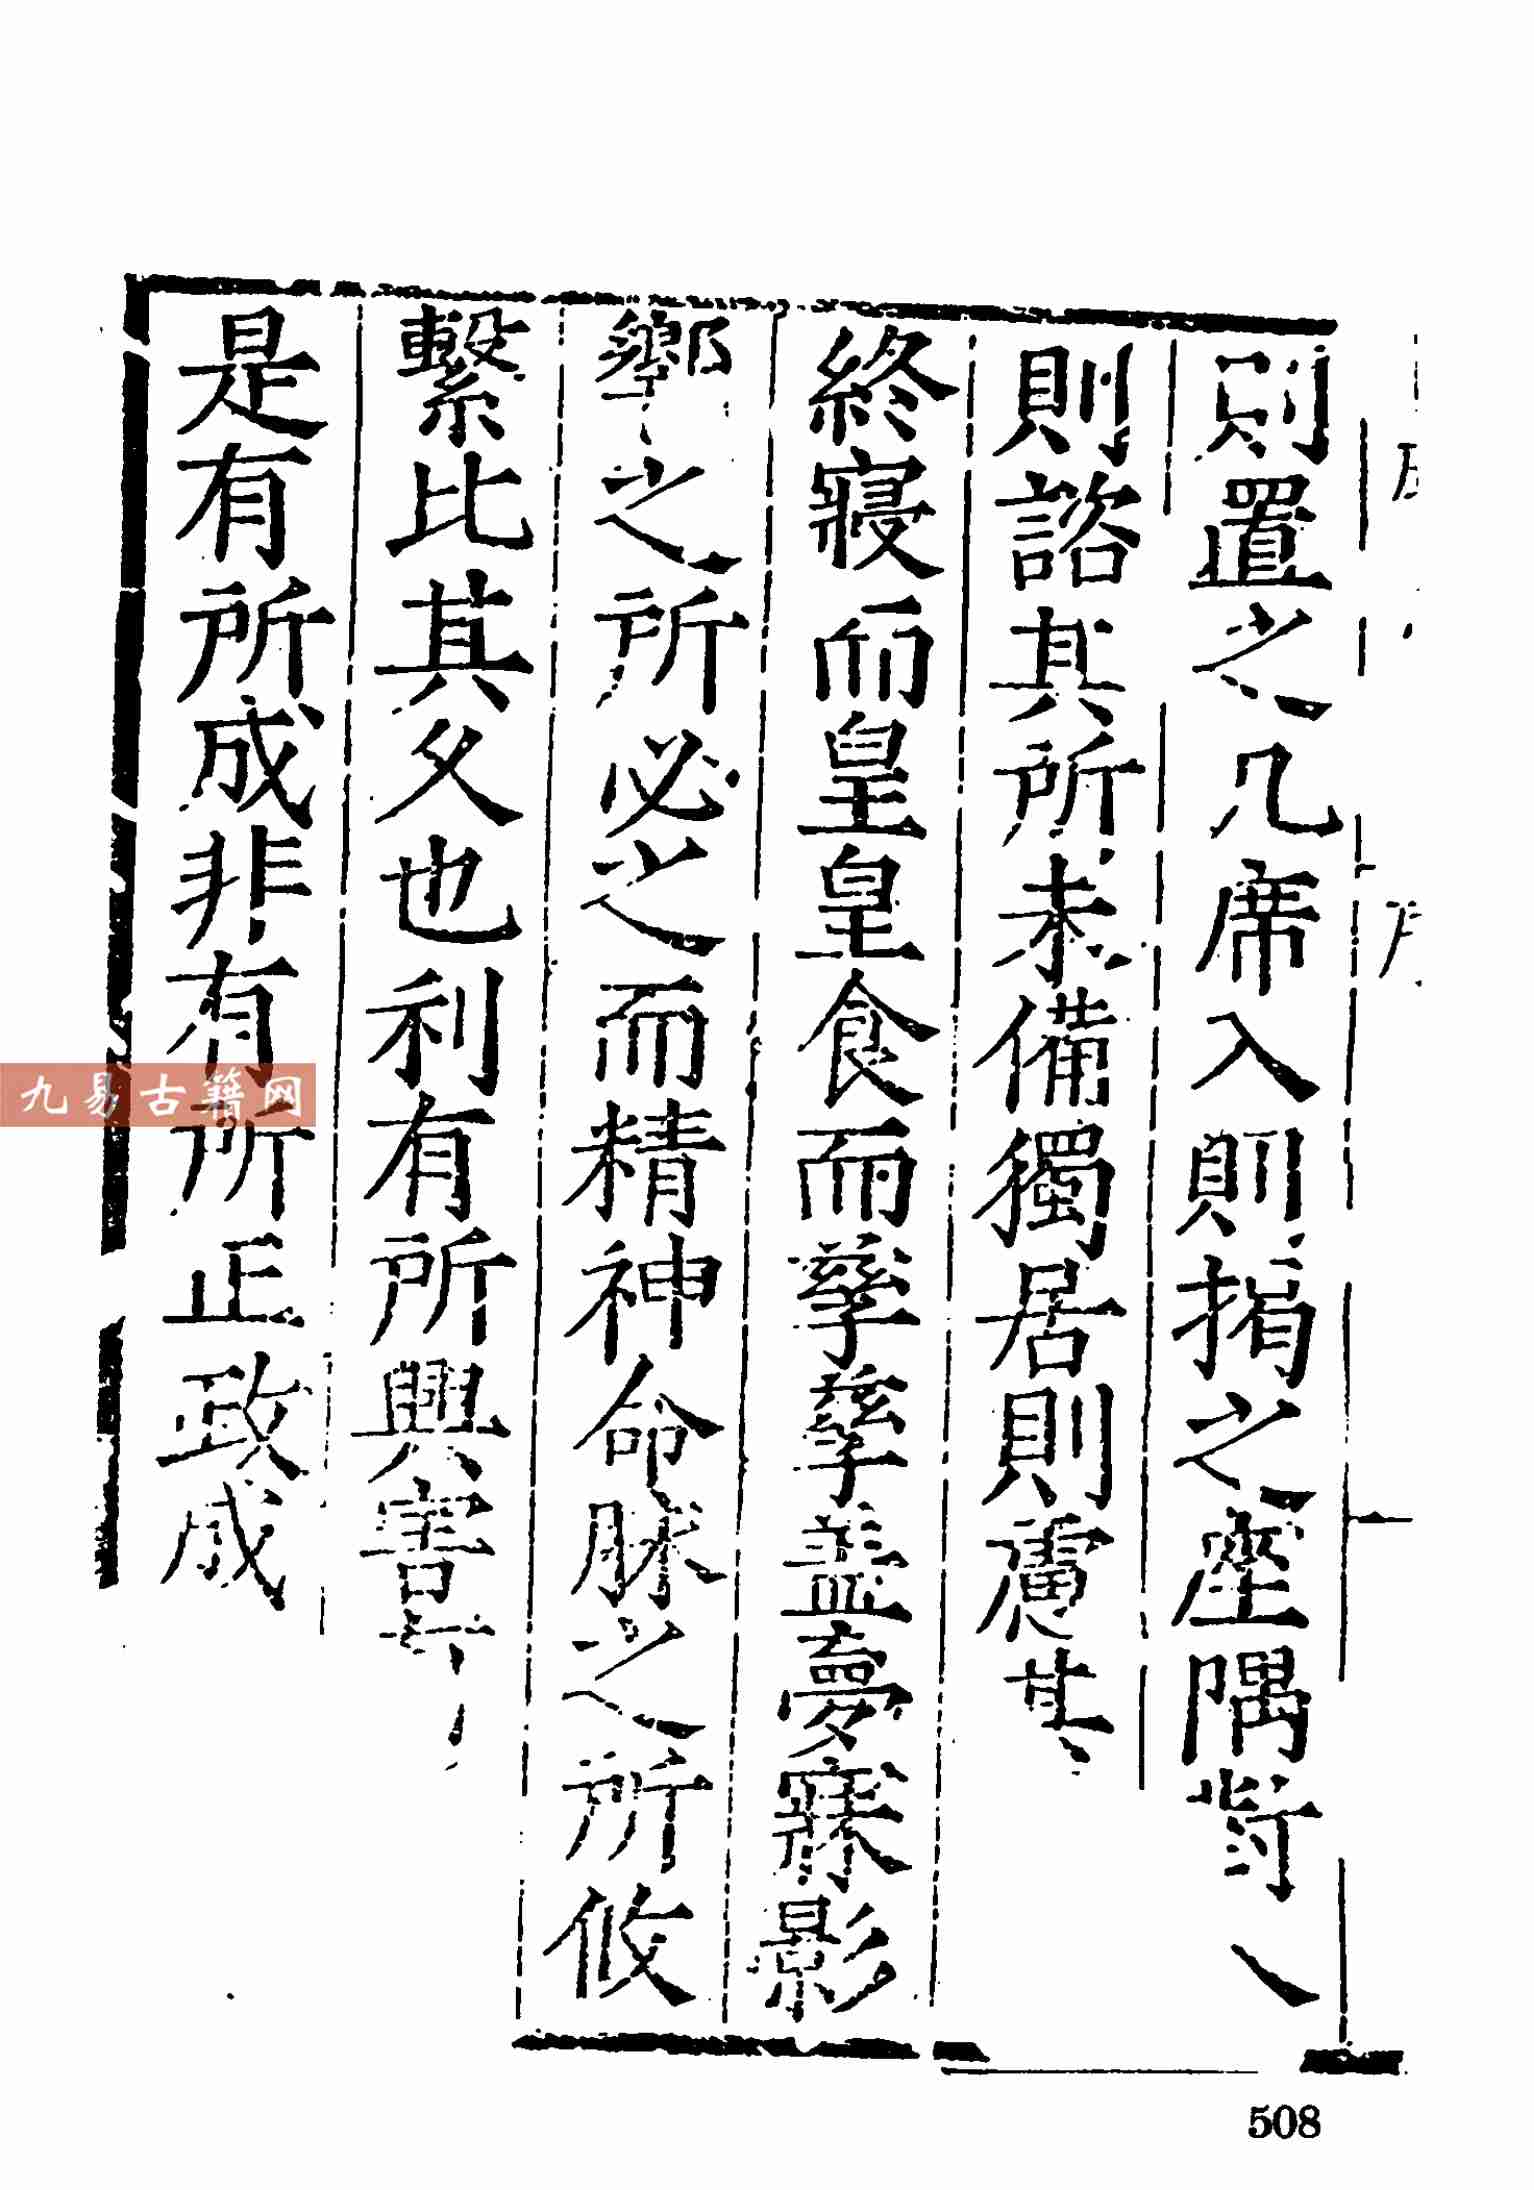 則置之几席入則揭之座隅對人
則諮其所未備獨居則慮其
終寢而皇皇食而孳孳盖夢寐影
嚮之所必之而精神命脉之所攸
繫比其久也利有所興害
是有所成非有所正政成
九易古籍网
508